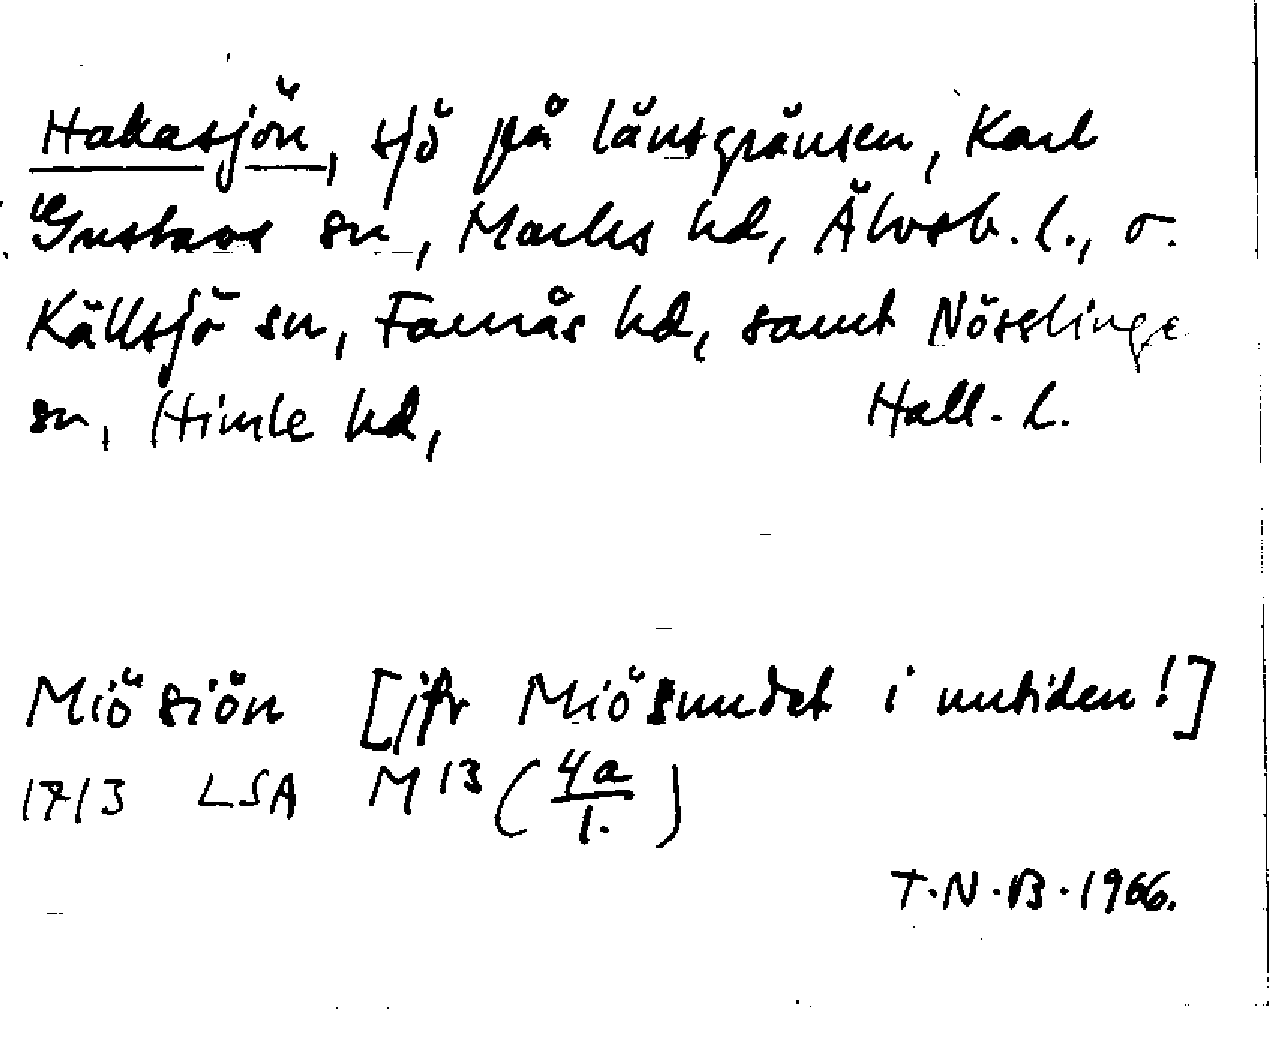 Hakasjön, sjö på länsgränsen, Karl
Gustavs sn, Marks hd, Älvsb. l., o.
Källsjö sn, Faurås hd, samt Nösslinge
sn, Himle hd, Hall. l.
Miösiön [jfr Miösundet i nutiden!]
1713 LSA M13 (4a/1.)
T.N.B. 1966.